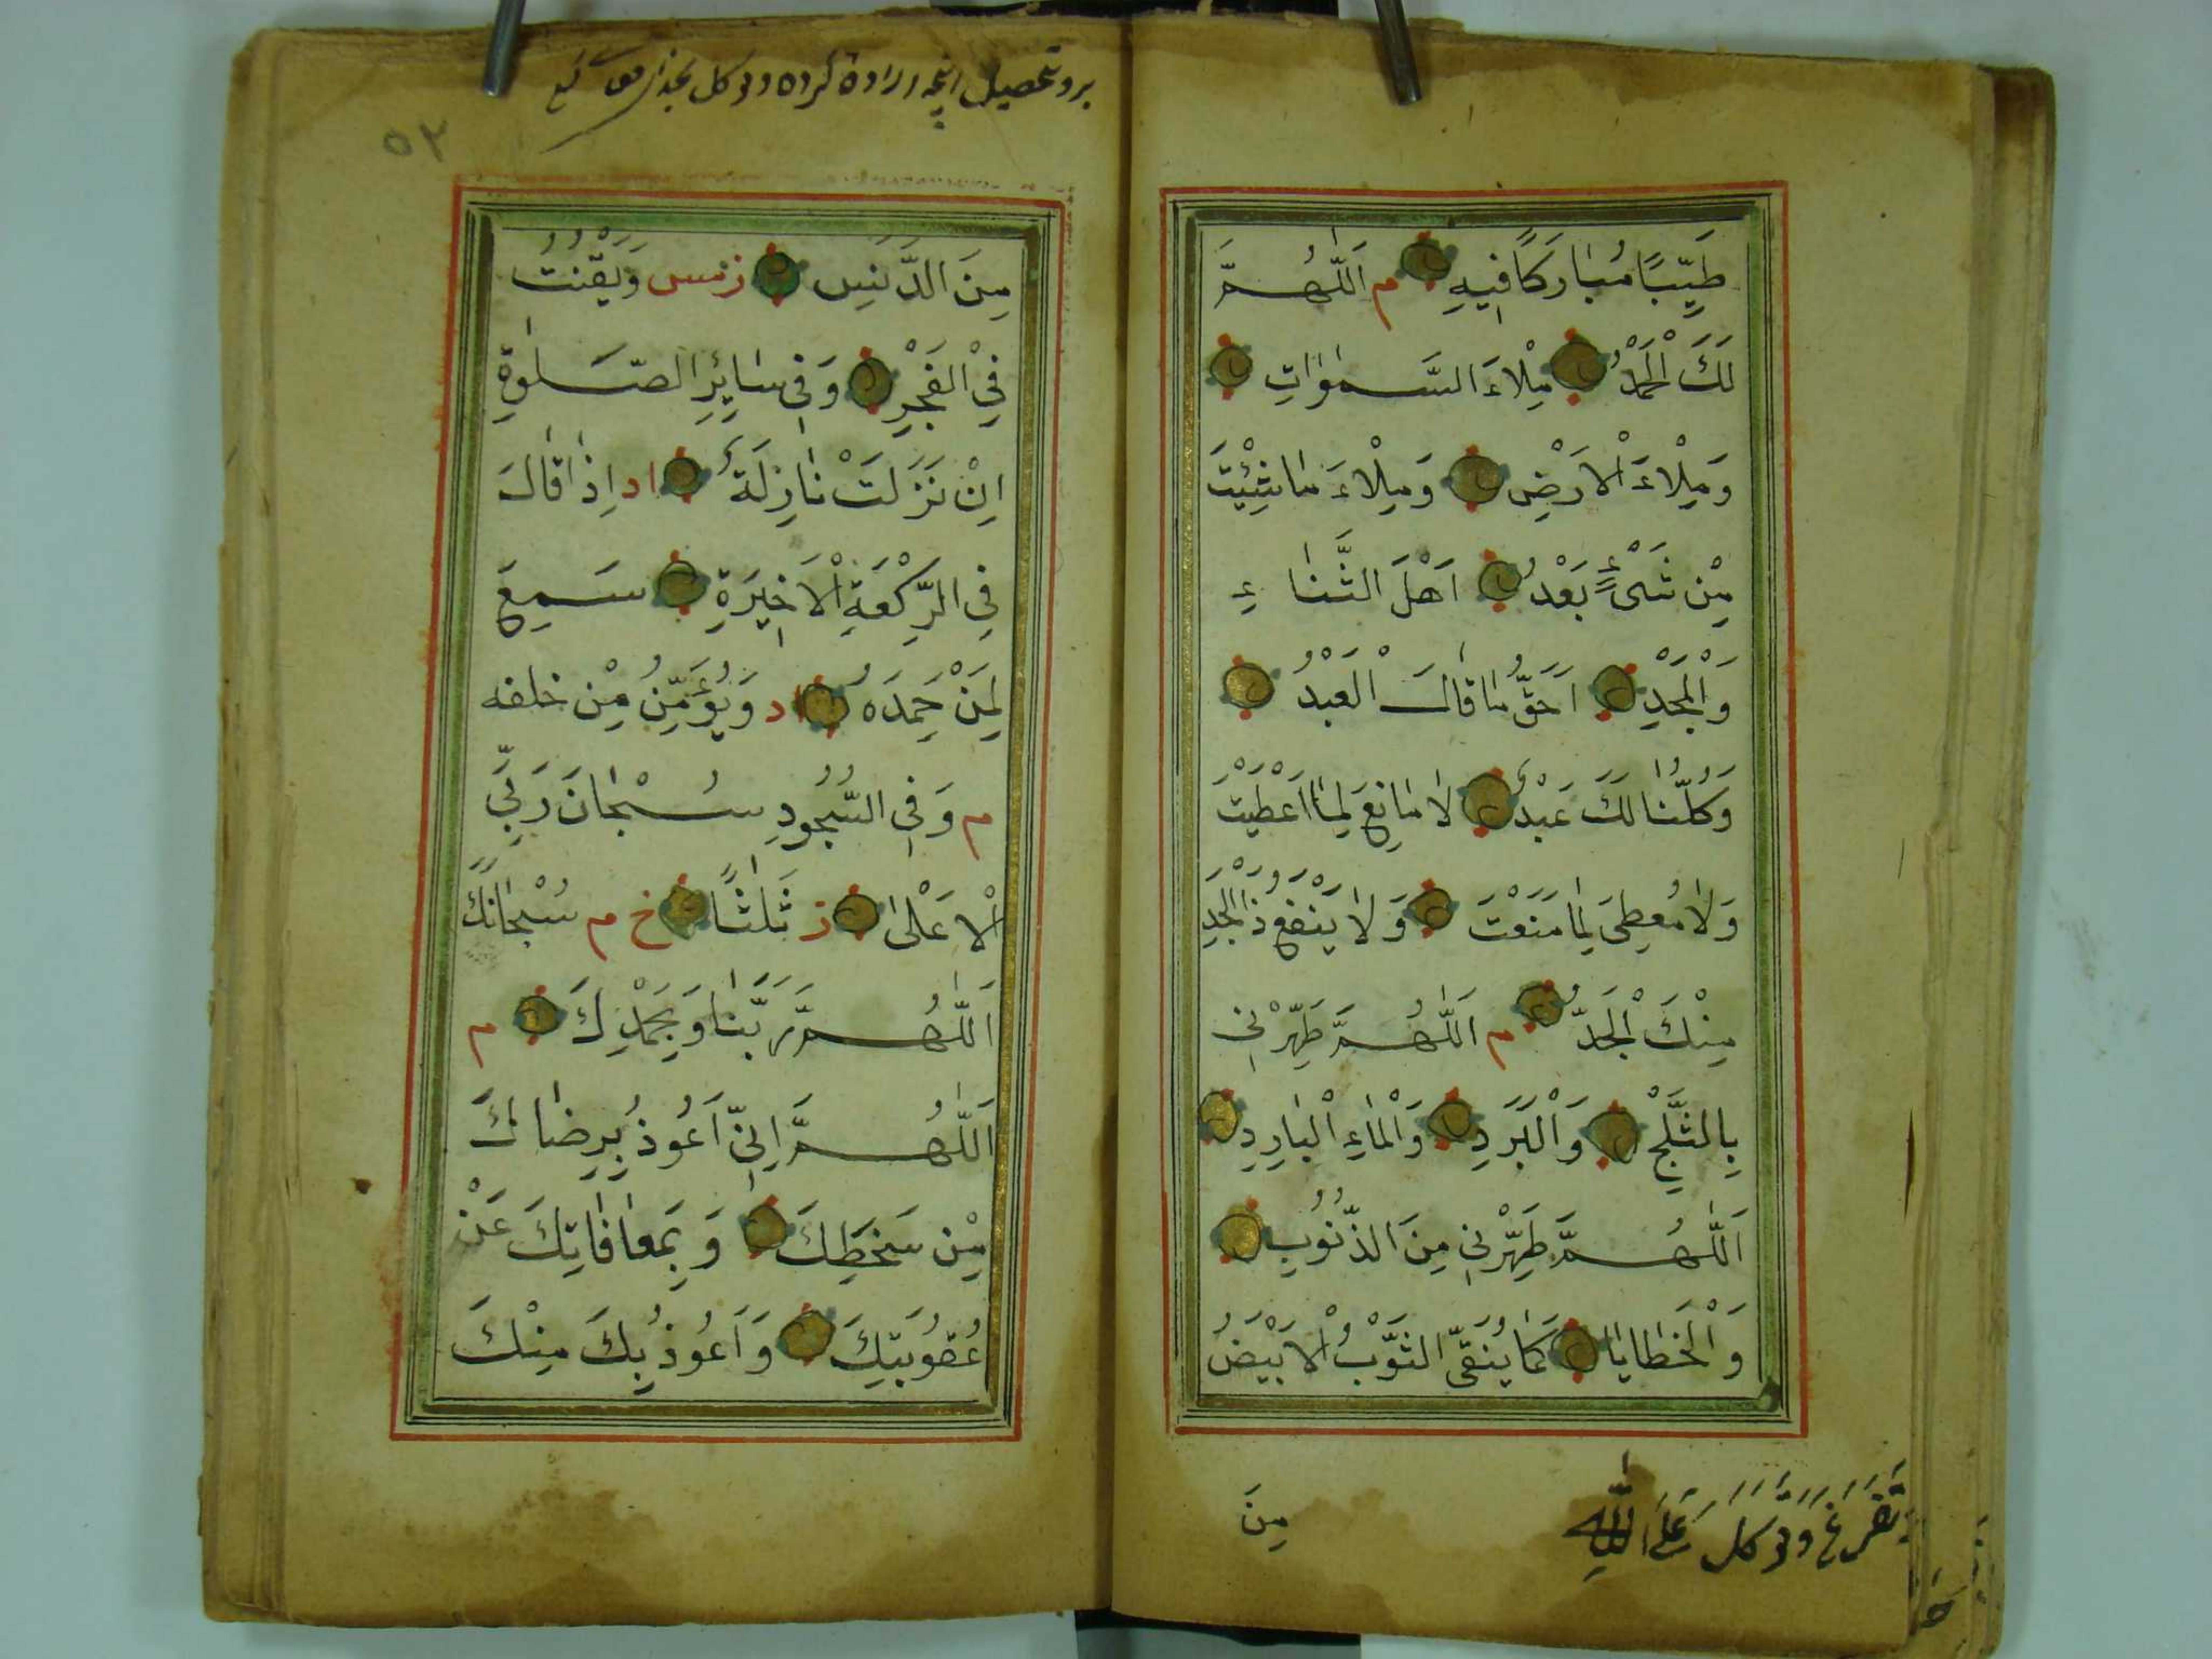 طَيِّبًا مُبَارَكًا فِيهِ م اَللّٰهُمَّ
لَكَ الْحَمْدُ مِلْاءَ السَّمٰوٰاتِ
وَمِلْاءَ الْاَرْضِ وَمِلْاءَ مَا شِئْتَ
مِنْ شَىْءٍ بَعْدُ اَهْلَ الثَّنَاءِ
وَالْمَجْدِ اَحَقُّ مَا قَالَ الْعَبْدُ
وَكُلُّنَا لَكَ عَبْدٌ لَا مَانِعَ لِمَا اَعْطَيْتَ
وَلَا مُعْطِىَ لِمَا مَنَعْتَ وَلَا يَنْفَعُ ذَا الْجَدِّ
مِنْكَ الْجَدُّ م اَللّٰهُمَّ طَهِّرْنِى
بِالثَّلْجِ وَالْبَرَدِ وَالْمَاءِ الْبَارِدِ
اَللّٰهُمَّ طَهِّرْنِى مِنَ الذُّنُوبِ
وَالْخَطَايَا كَمَا يُنَقَّى الثَّوْبُ الْاَبْيَضُ
مِنَ
وتوكل عَلَى اللّٰهِ
بر و تحصيل انچه اراده كرده وتوكل
٥٢
مِنَ الدَّنَسِ ز مس وَيَقْنُتُ
فِى الْفَجْرِ وَفِى سَايِرِ الصَّلٰوةِ
اِنْ نَزَلَتْ نَازِلَةٌ اد اِذَا قَالَ
فِى الرَّكْعَةِ الْاَخِيرَةِ سَمِعَ
لِمَنْ حَمِدَهُ اد وَيُؤَمِّنُ مِنْ خلفه
م وَفِى السُّجُودِ سُبْحَانَ رَبِّىَ
الْاَعْلٰى ز ثَلٰثًا خ م سُبْحَانَكَ
اَللّٰهُمَّ رَبَّنَا وَبِحَمْدِكَ م
اَللّٰهُمَّ اِنِّى اَعُوذُ بِرِضَاكَ
مِنْ سَخَطِكَ وَبِمُعَافَاتِكَ عَنْ
عُقُوبَتِكَ وَاَعُوذُ بِكَ مِنْكَ